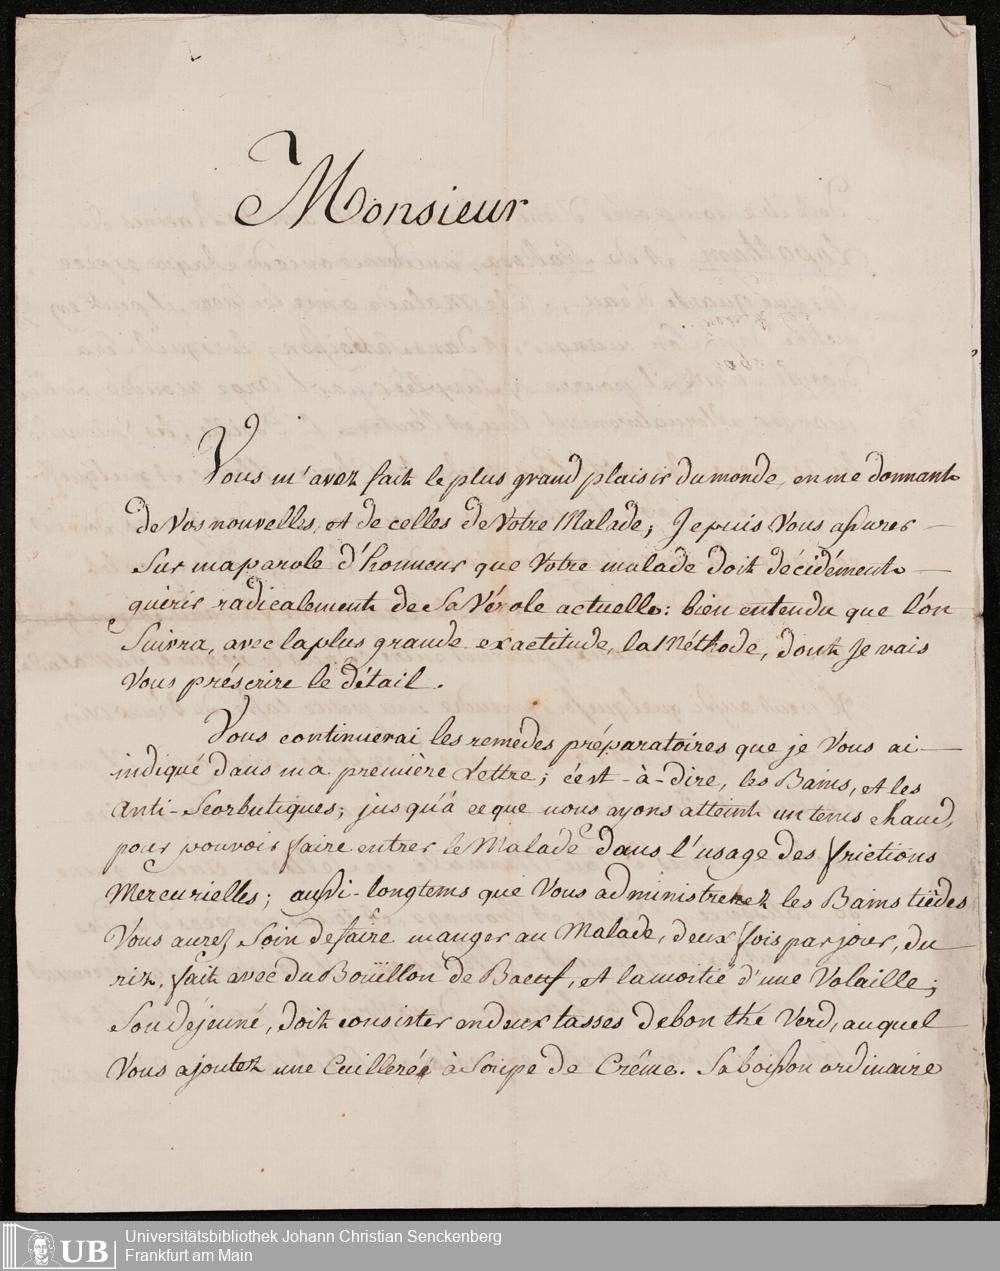 Monsieur
Vous m'avez fait le plus grand plaisir du monde, en me donnant
de Vos nouvelles, et de celles de Votre Malade; Je puis Vous assurer
Sur ma parole d'honneur que Votre malade doit décidément
guérir radicalement de Sa Vérole actuelle: bien entendu que l'on
Suivra, avec la plus grande exactitude, la Méthode, dont Je vais
Vous préscrire le détail.
Vous continuerai les remedes préparatoires que je Vous ai
indiqué dans ma première Lettre; c'est-à-dire, les Bains, et les
Anti-Scorbutiques; jusqu'à ce que nous ayons atteint un tems chaud,
pour pouvoir faire entrer le Malade dans l'usage des frictions
Mercurielles; aussi-longtems que Vous administrerez les Bains tièdes
Vous aurez Soin de faire manger au Malade, deux fois par jour, du
riz, fait avec du Boüillon de Baeuf, et la moitié d'une Volaille;
Son déjeuné, doit consister en deux tasses de bon thé Verd, auquel
Vous ajoutez une Cuilleréé à Soupe de Crême. Sa boisson ordinaire
UB
Universitätsbibliothek Johann Christian Senckenberg
Frankfurt am Main